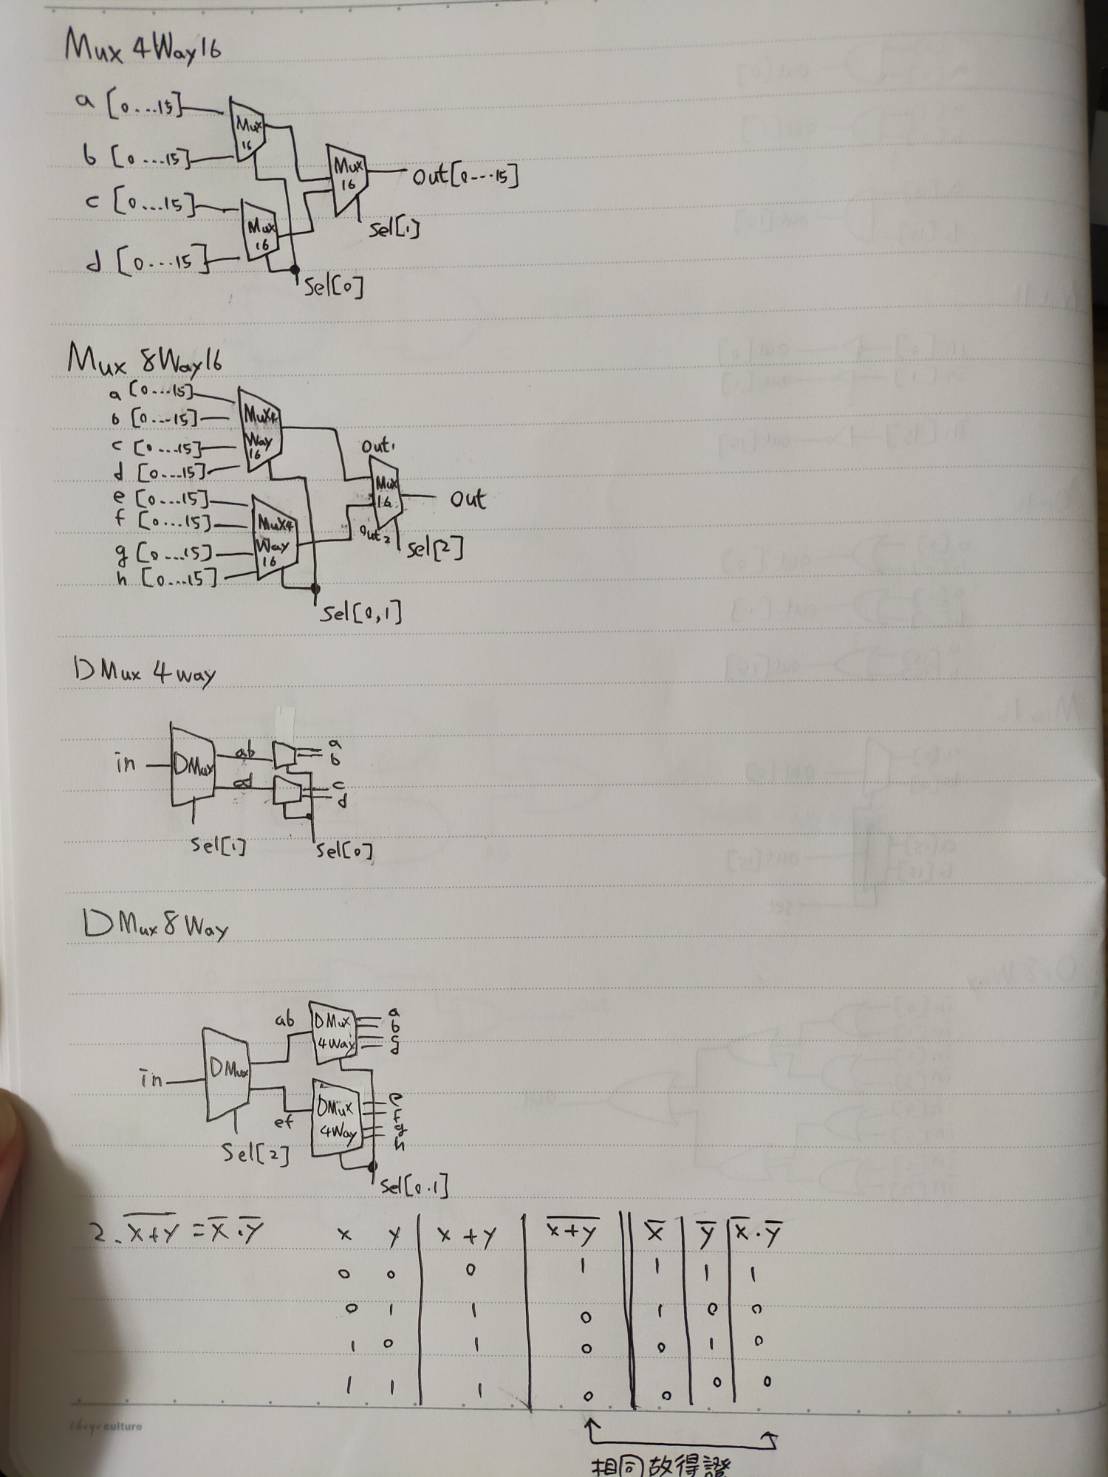 Mux 4Way16
a [0...15]
b [0...15]
c [0...15]
d [0...15]
Mux 16
Mux 16
Mux 16
out[0...15]
sel[1]
sel[0]
Mux 8Way16
a [0...15]
b [0...15]
c [0...15]
d [0...15]
e [0...15]
f [0...15]
g [0...15]
h [0...15]
Mux4 Way 16
Mux4 Way 16
out1
Mux 16
out2
out
sel[2]
sel[0,1]
DMux 4way
in
DMux
ab
cd
a
b
c
d
sel[1]
sel[0]
DMux8Way
in
DMux
ab
ef
DMux 4Way
DMux 4Way
a
b
c
d
e
f
g
h
sel[2]
sel[0.1]
2. X̅+̅Y̅ = X̅.Y̅
x y x+y x̅+̅y̅ x̅ y̅ x̅.y̅
0 0 0 1 1 1 1
0 1 1 0 1 0 0
1 0 1 0 0 1 0
1 1 1 0 0 0 0
相同故得證